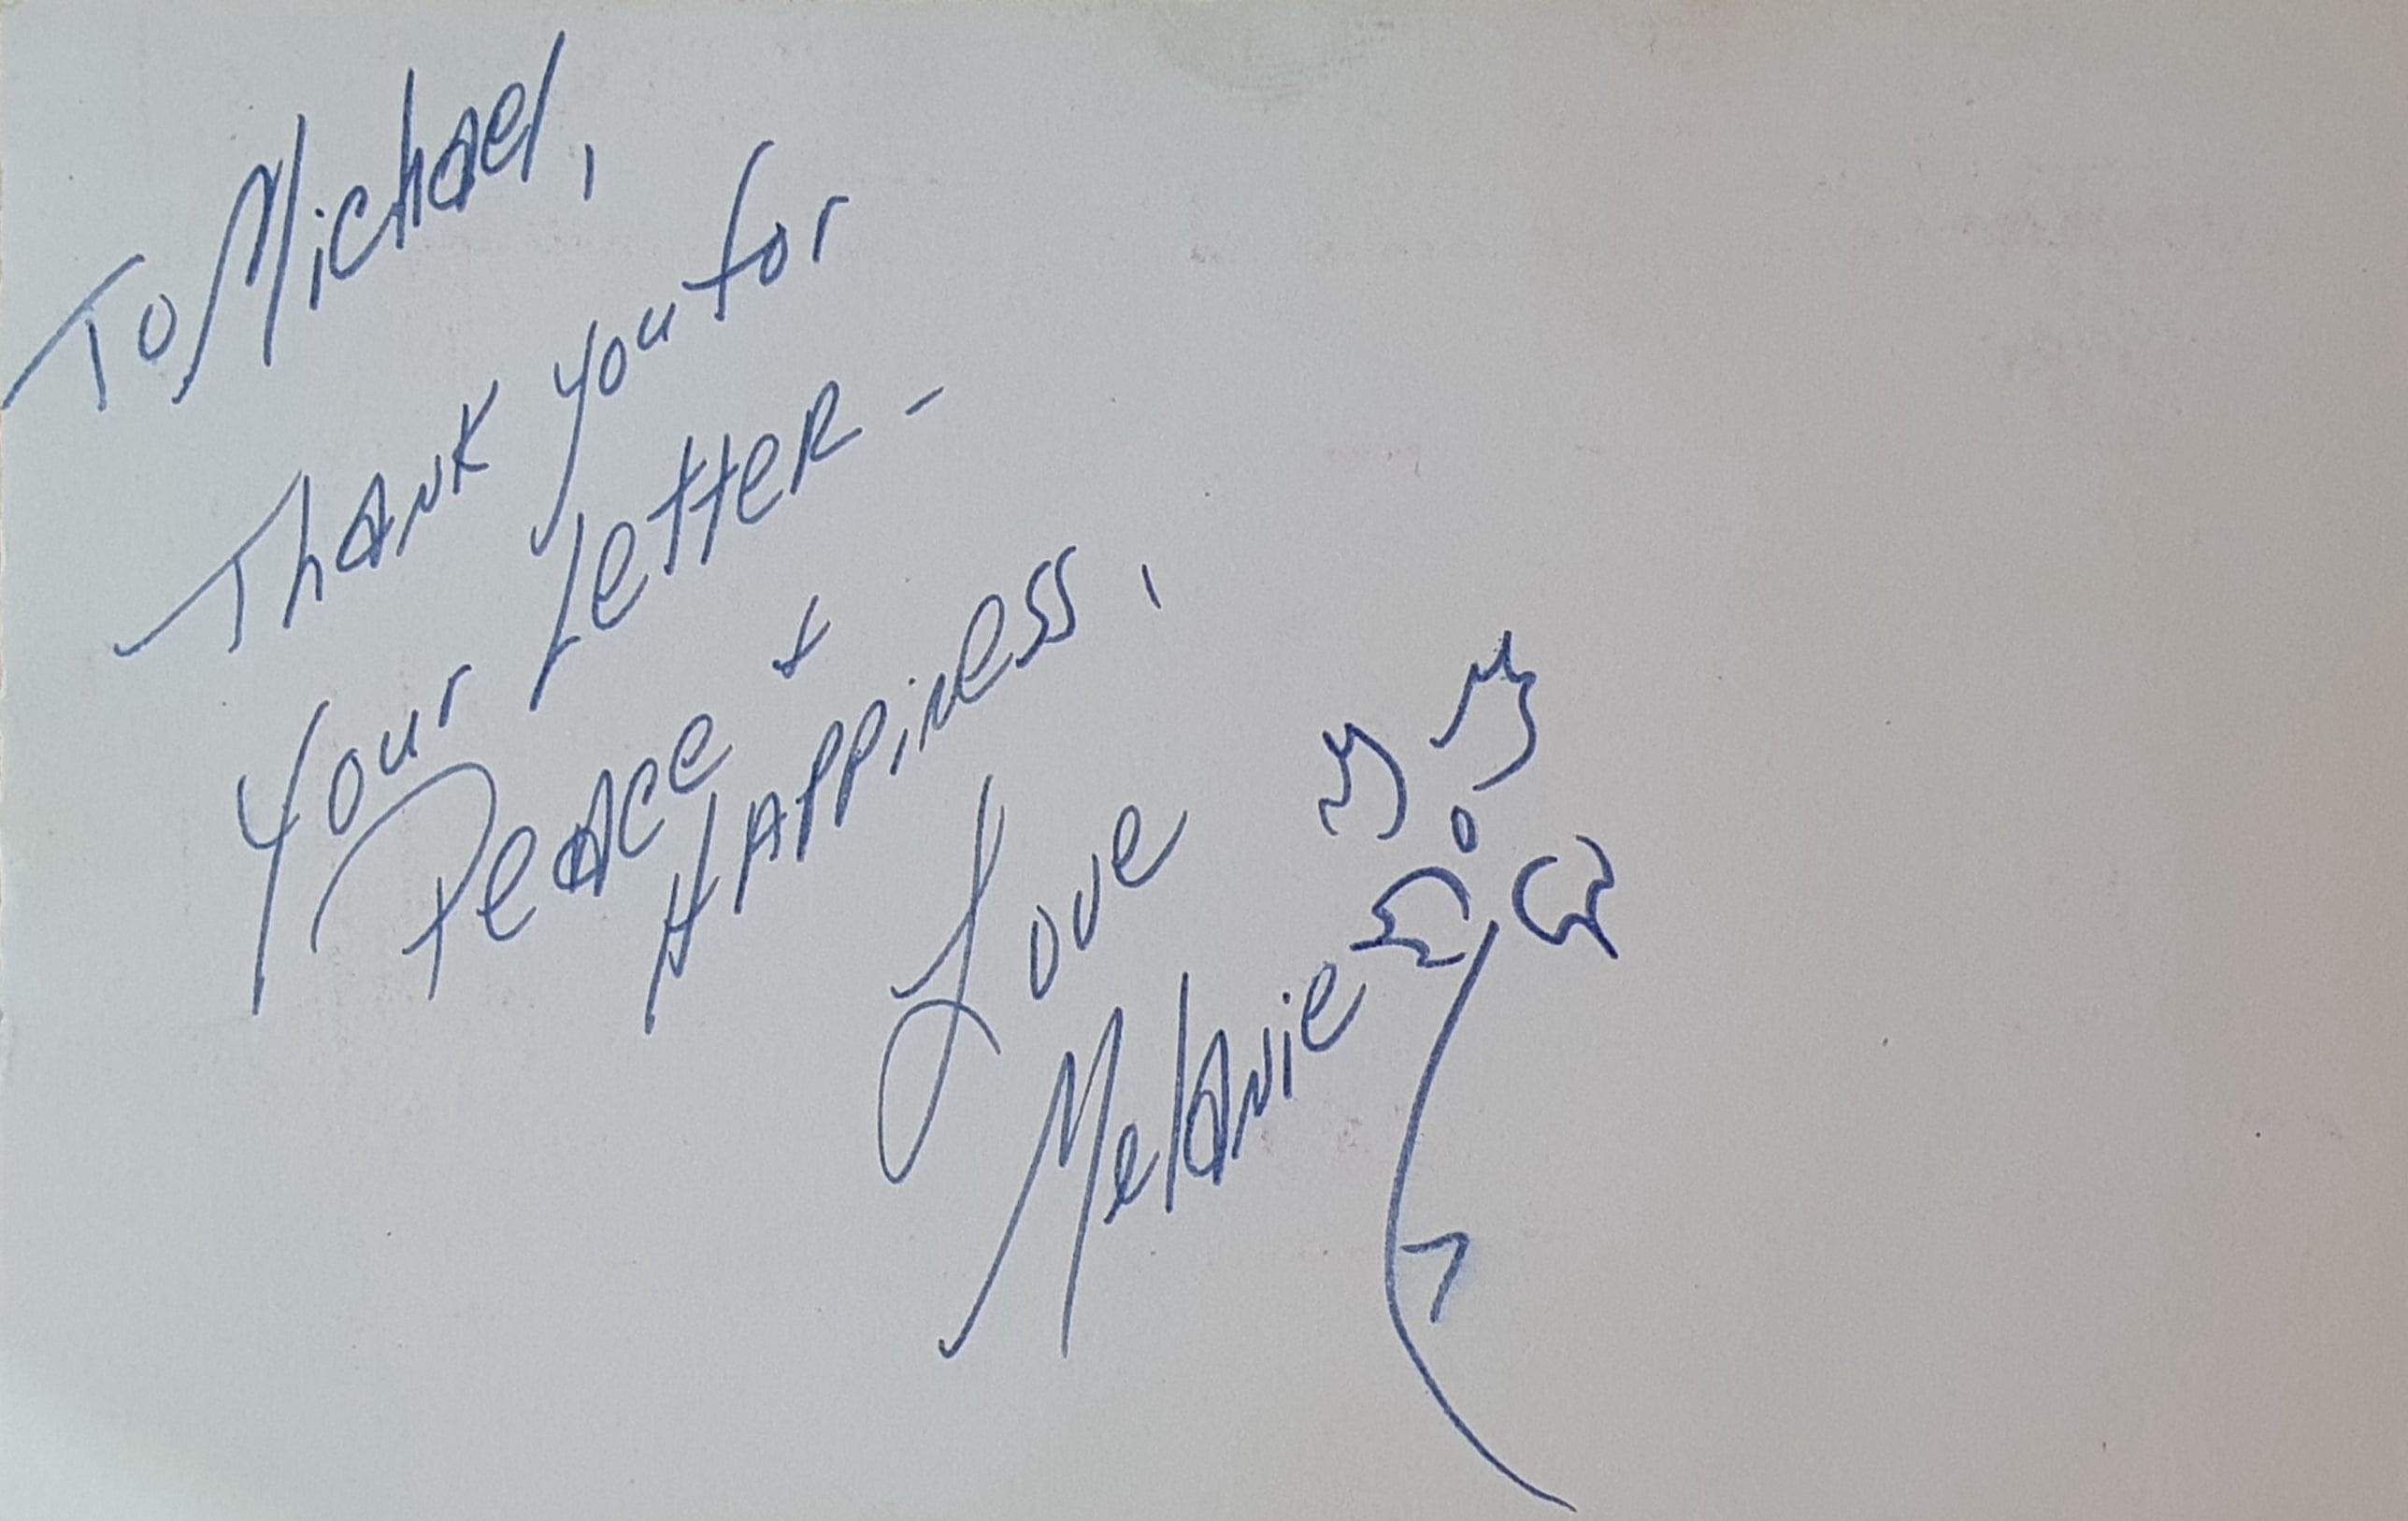 To Michael,
Thank you for
your Letter -
Peace +
Happiness,
Love
Melanie